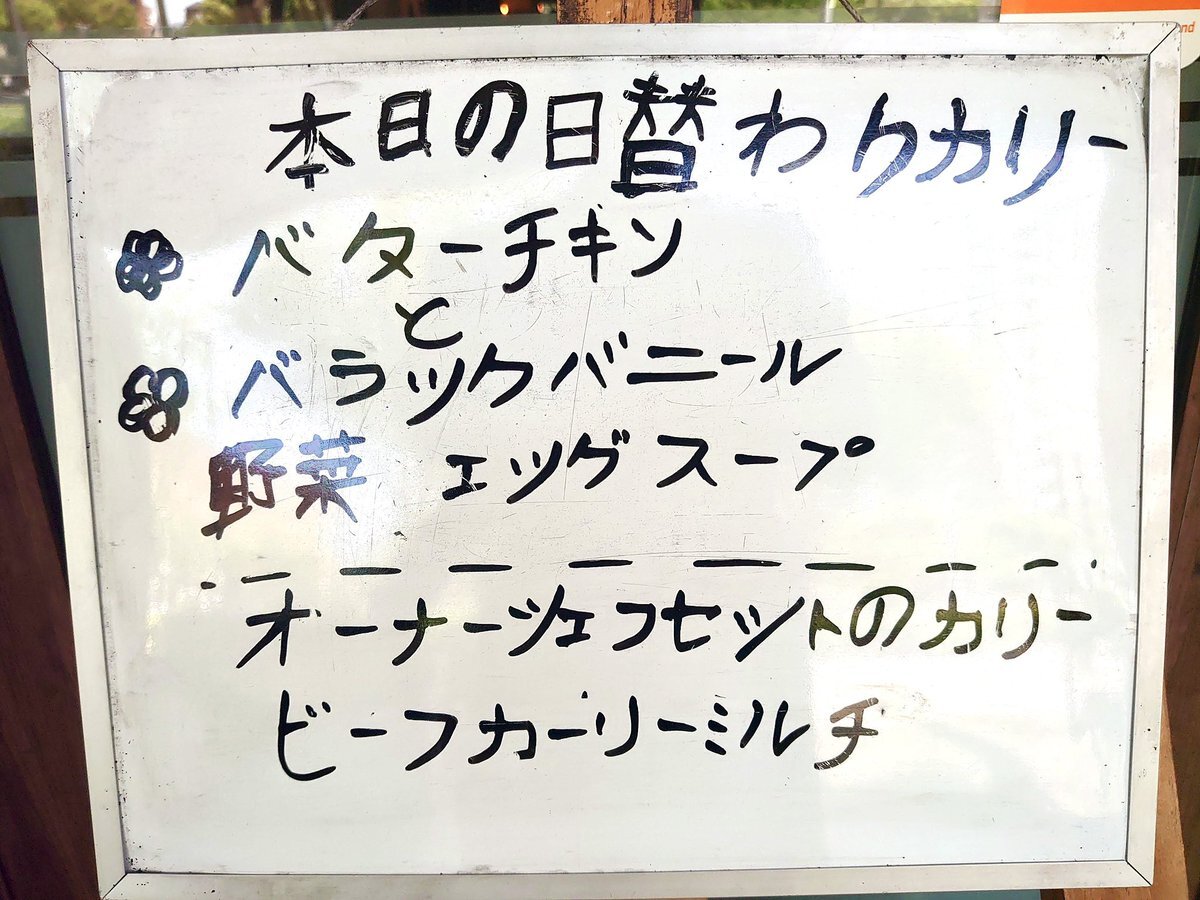 本日の日替わりカリー
バターチキン
と
バラックバニール
野菜 エッグスープ
オーナーシェフセットのカリー
ビーフカーリーミルチ
nd